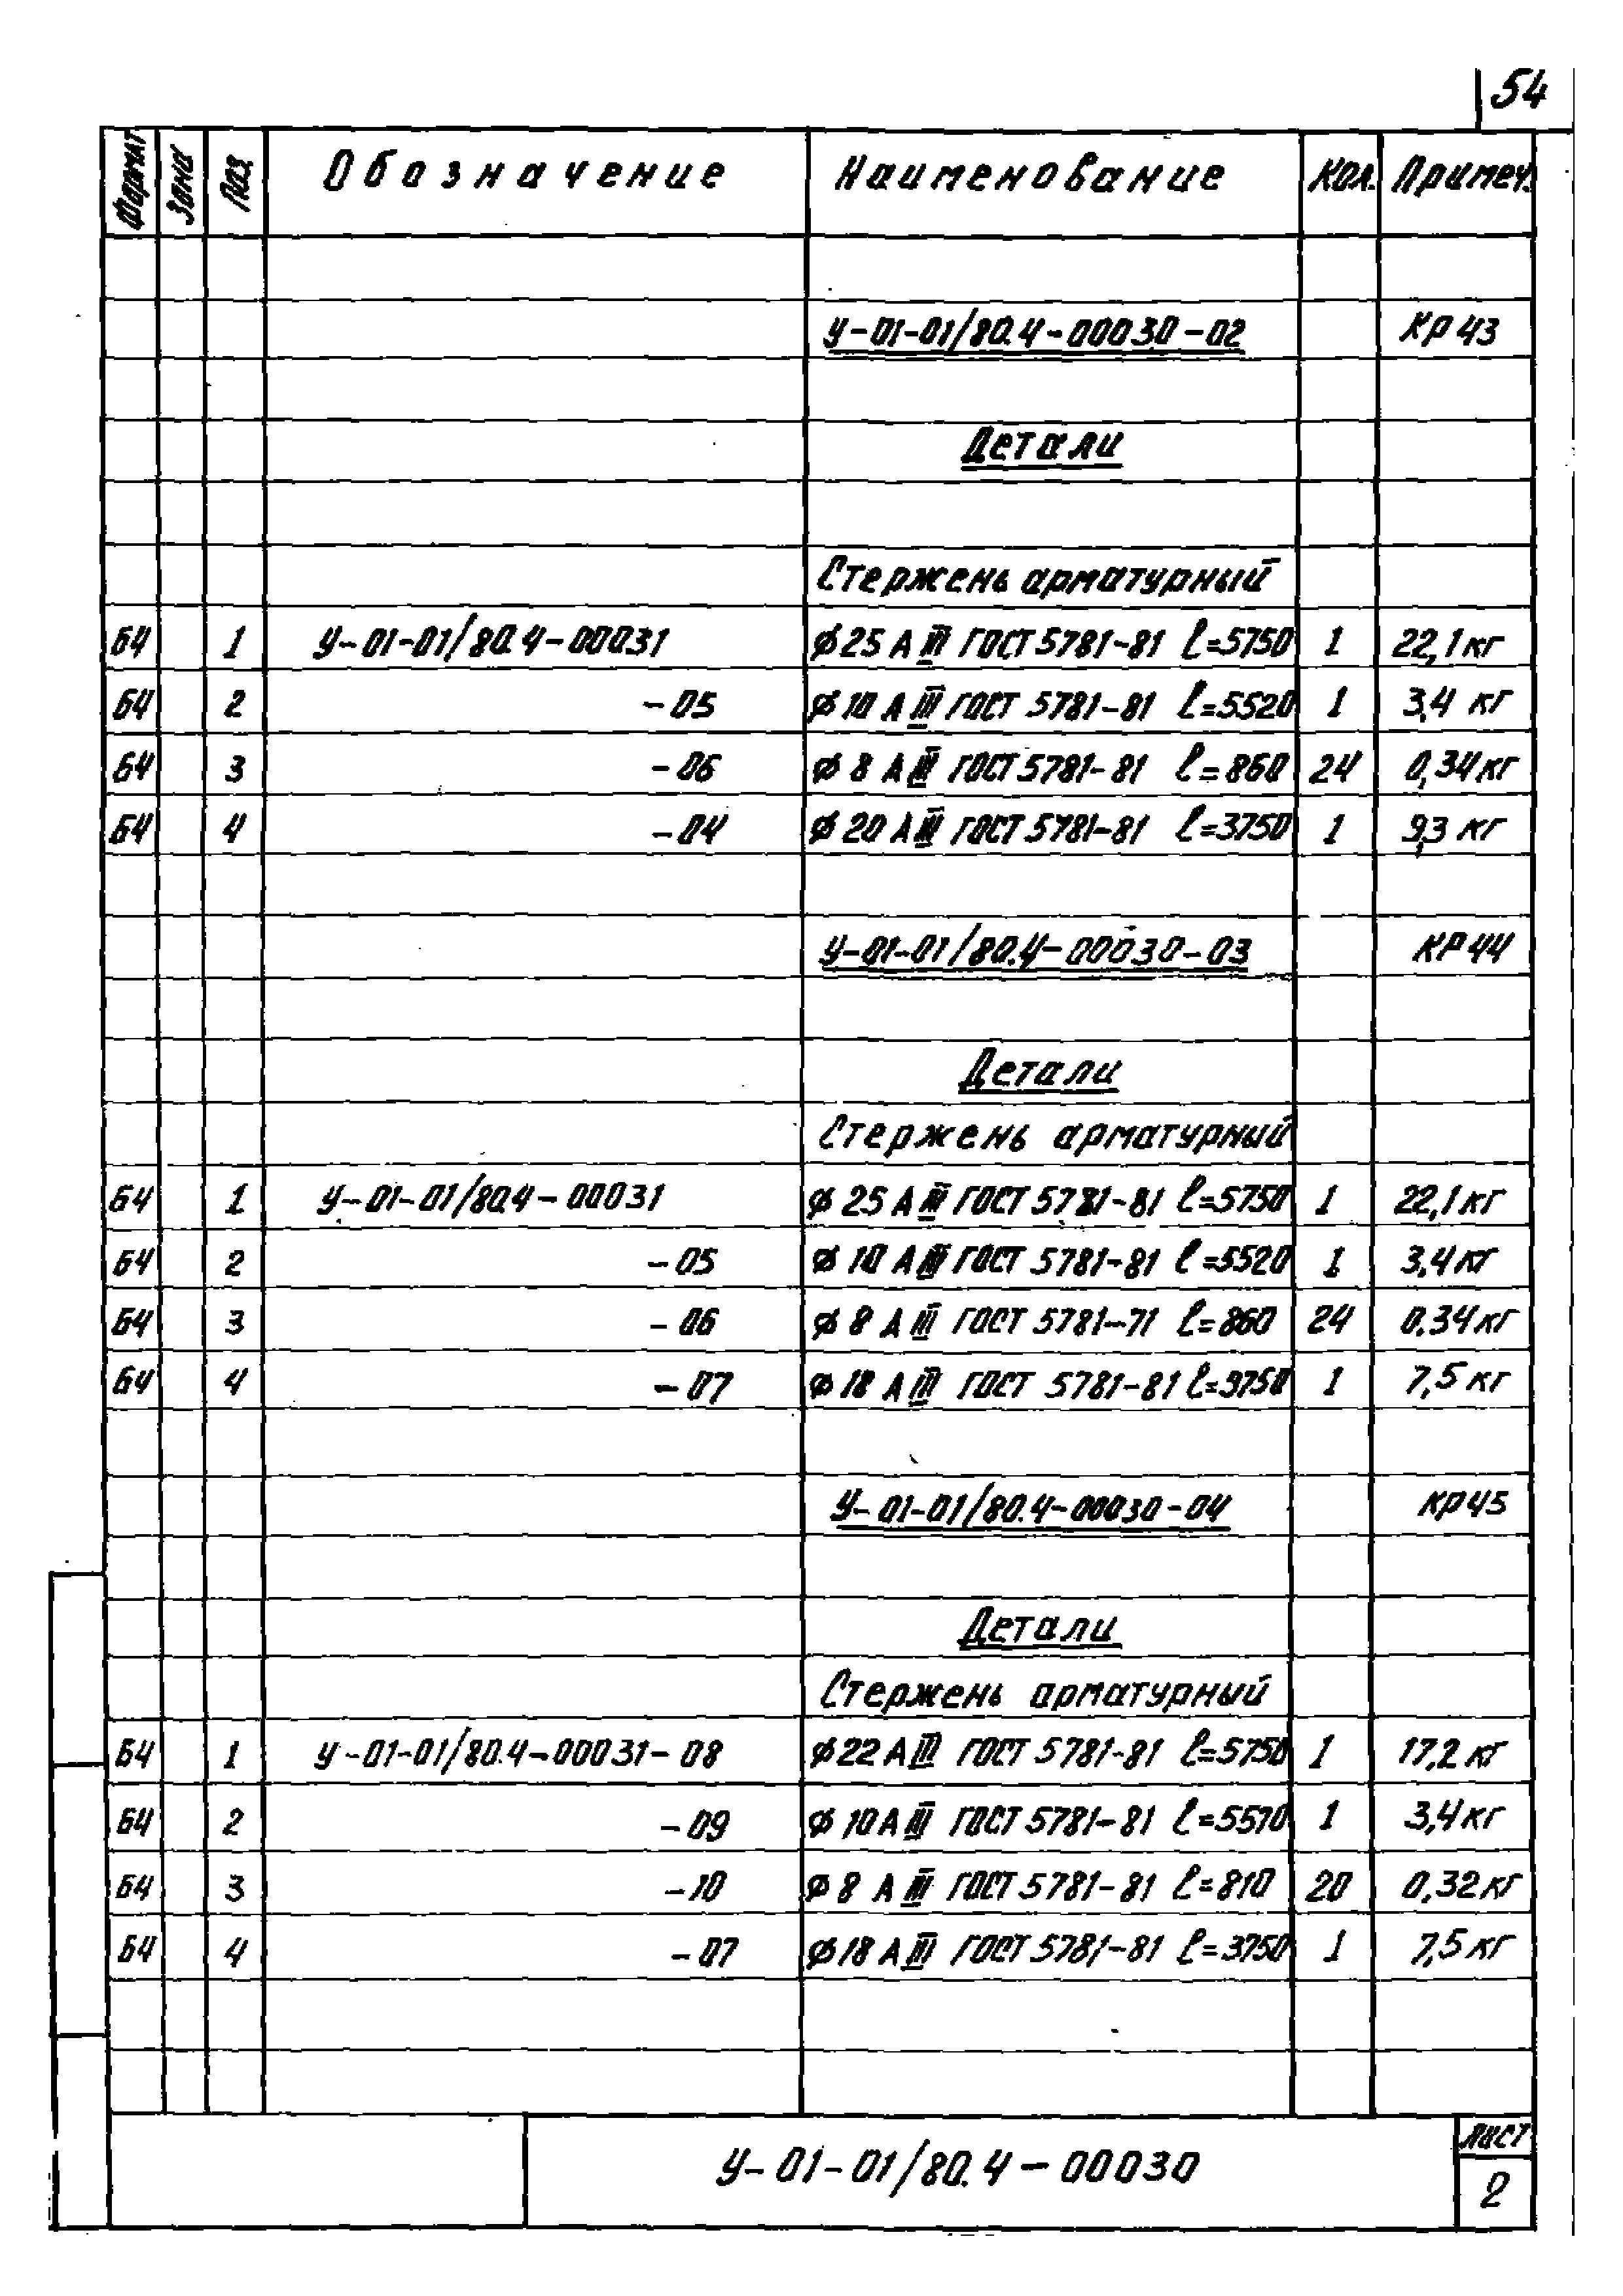 54
Формат Зона Поз. Обозначение Наименование Кол. Примеч.
У-01-01/80.4-00030-02 КР43
Детали
Стержень арматурный
БЧ 1 У-01-01/80.4-00031 ϕ25 А III ГОСТ 5781-81 ℓ=5750 1 22,1 кг
БЧ 2 -05 ϕ10 А III ГОСТ 5781-81 ℓ=5520 1 3,4 кг
БЧ 3 -06 ϕ 8 А III ГОСТ 5781-81 ℓ=860 24 0,34 кг
БЧ 4 -04 ϕ 20 А III ГОСТ 5781-81 ℓ=3750 1 9,3 кг
У-01-01/80.4-00030-03 КР44
Детали
Стержень арматурный
БЧ 1 У-01-01/80.4-00031 ϕ 25 А III ГОСТ 5781-81 ℓ=5750 1 22,1 кг
БЧ 2 -05 ϕ 10 А III ГОСТ 5781-81 ℓ=5520 1 3,4 кг
БЧ 3 -06 ϕ 8 А III ГОСТ 5781-71 ℓ=860 24 0.34 кг
БЧ 4 -07 ϕ 18 А III ГОСТ 5781-81 ℓ=3750 1 7,5 кг
У-01-01/80.4-00030-04 КР45
Детали
Стержень арматурный
БЧ 1 У-01-01/80.4-00031-08 ϕ22 А III ГОСТ 5781-81 ℓ=5750 1 17,2 кг
БЧ 2 -09 ϕ 10 А III ГОСТ 5781-81 ℓ=5570 1 3,4 кг
БЧ 3 -10 ϕ 8 А III ГОСТ 5781-81 ℓ=810 20 0,32 кг
БЧ 4 -07 ϕ18 А III ГОСТ 5781-81 ℓ=3750 1 7,5 кг
У-01-01/80.4-00030
Лист
2